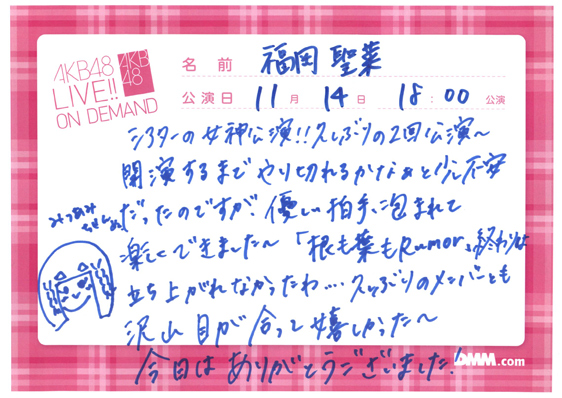 AKB48
LIVE!!
ON DEMAND
AKB
48
名前 福岡 聖菜
公演日 11月 14日 18:00 公演
シアターの女神公演!!久しぶりの2回公演〜
開演するまでやり切れるかなぁと少し不安
だったのですが、優しい拍手に包まれて
みつあみ
楽しくできました〜「根も葉もRumor」終わりは
立ち上がれなかったわ…。久しぶりのメンバーとも
沢山目が合って嬉しかった〜
今日はありがとうございました!
DMM.com